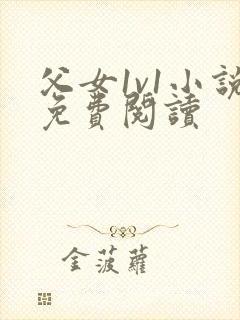 父女1v1小説
免費閱讀
金菠蘿